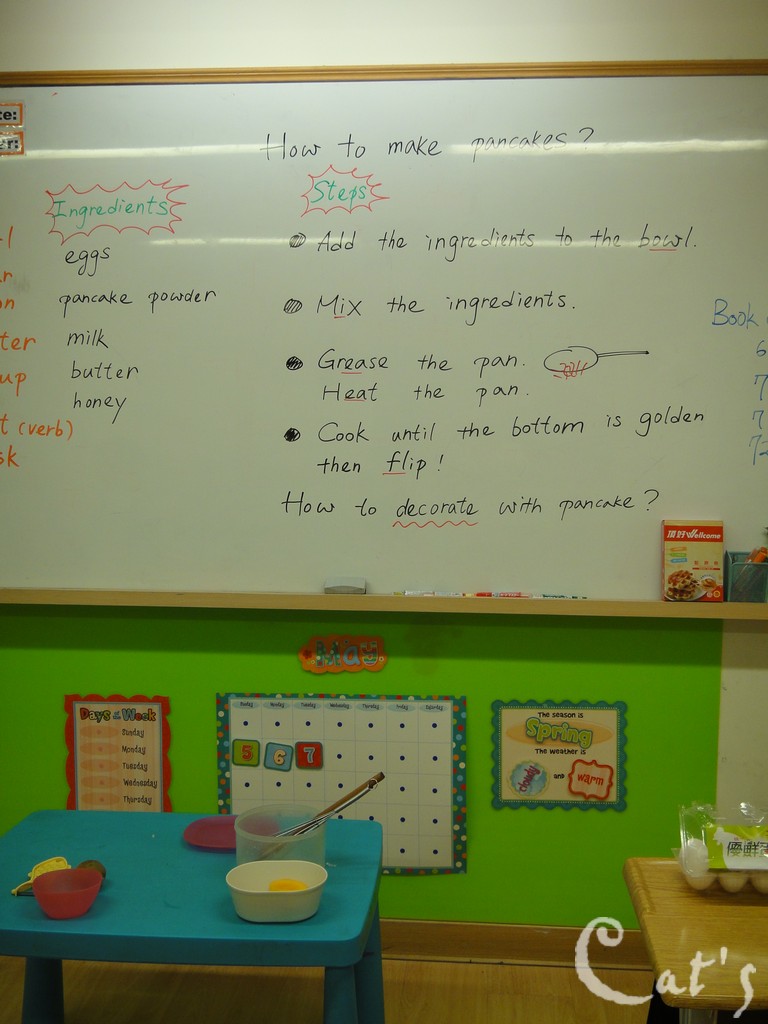 How to make pancakes?
Ingredients
eggs
pancake powder
milk
butter
honey
(verb)
Steps
Add the ingredients to the bowl.
Mix the ingredients.
Grease the pan.
Heat the pan.
Cook until the bottom is golden
then flip!
How to decorate with pancake?
Book
頂好Wellcome
May
Days of the Week
Sunday
Monday
Tuesday
Wednesday
Thursday
Sunday Monday Tuesday Wednesday Thursday Friday Saturday
5 6 7
The season is
Spring
The weather is
cloudy and warm
優鮮
Cat's